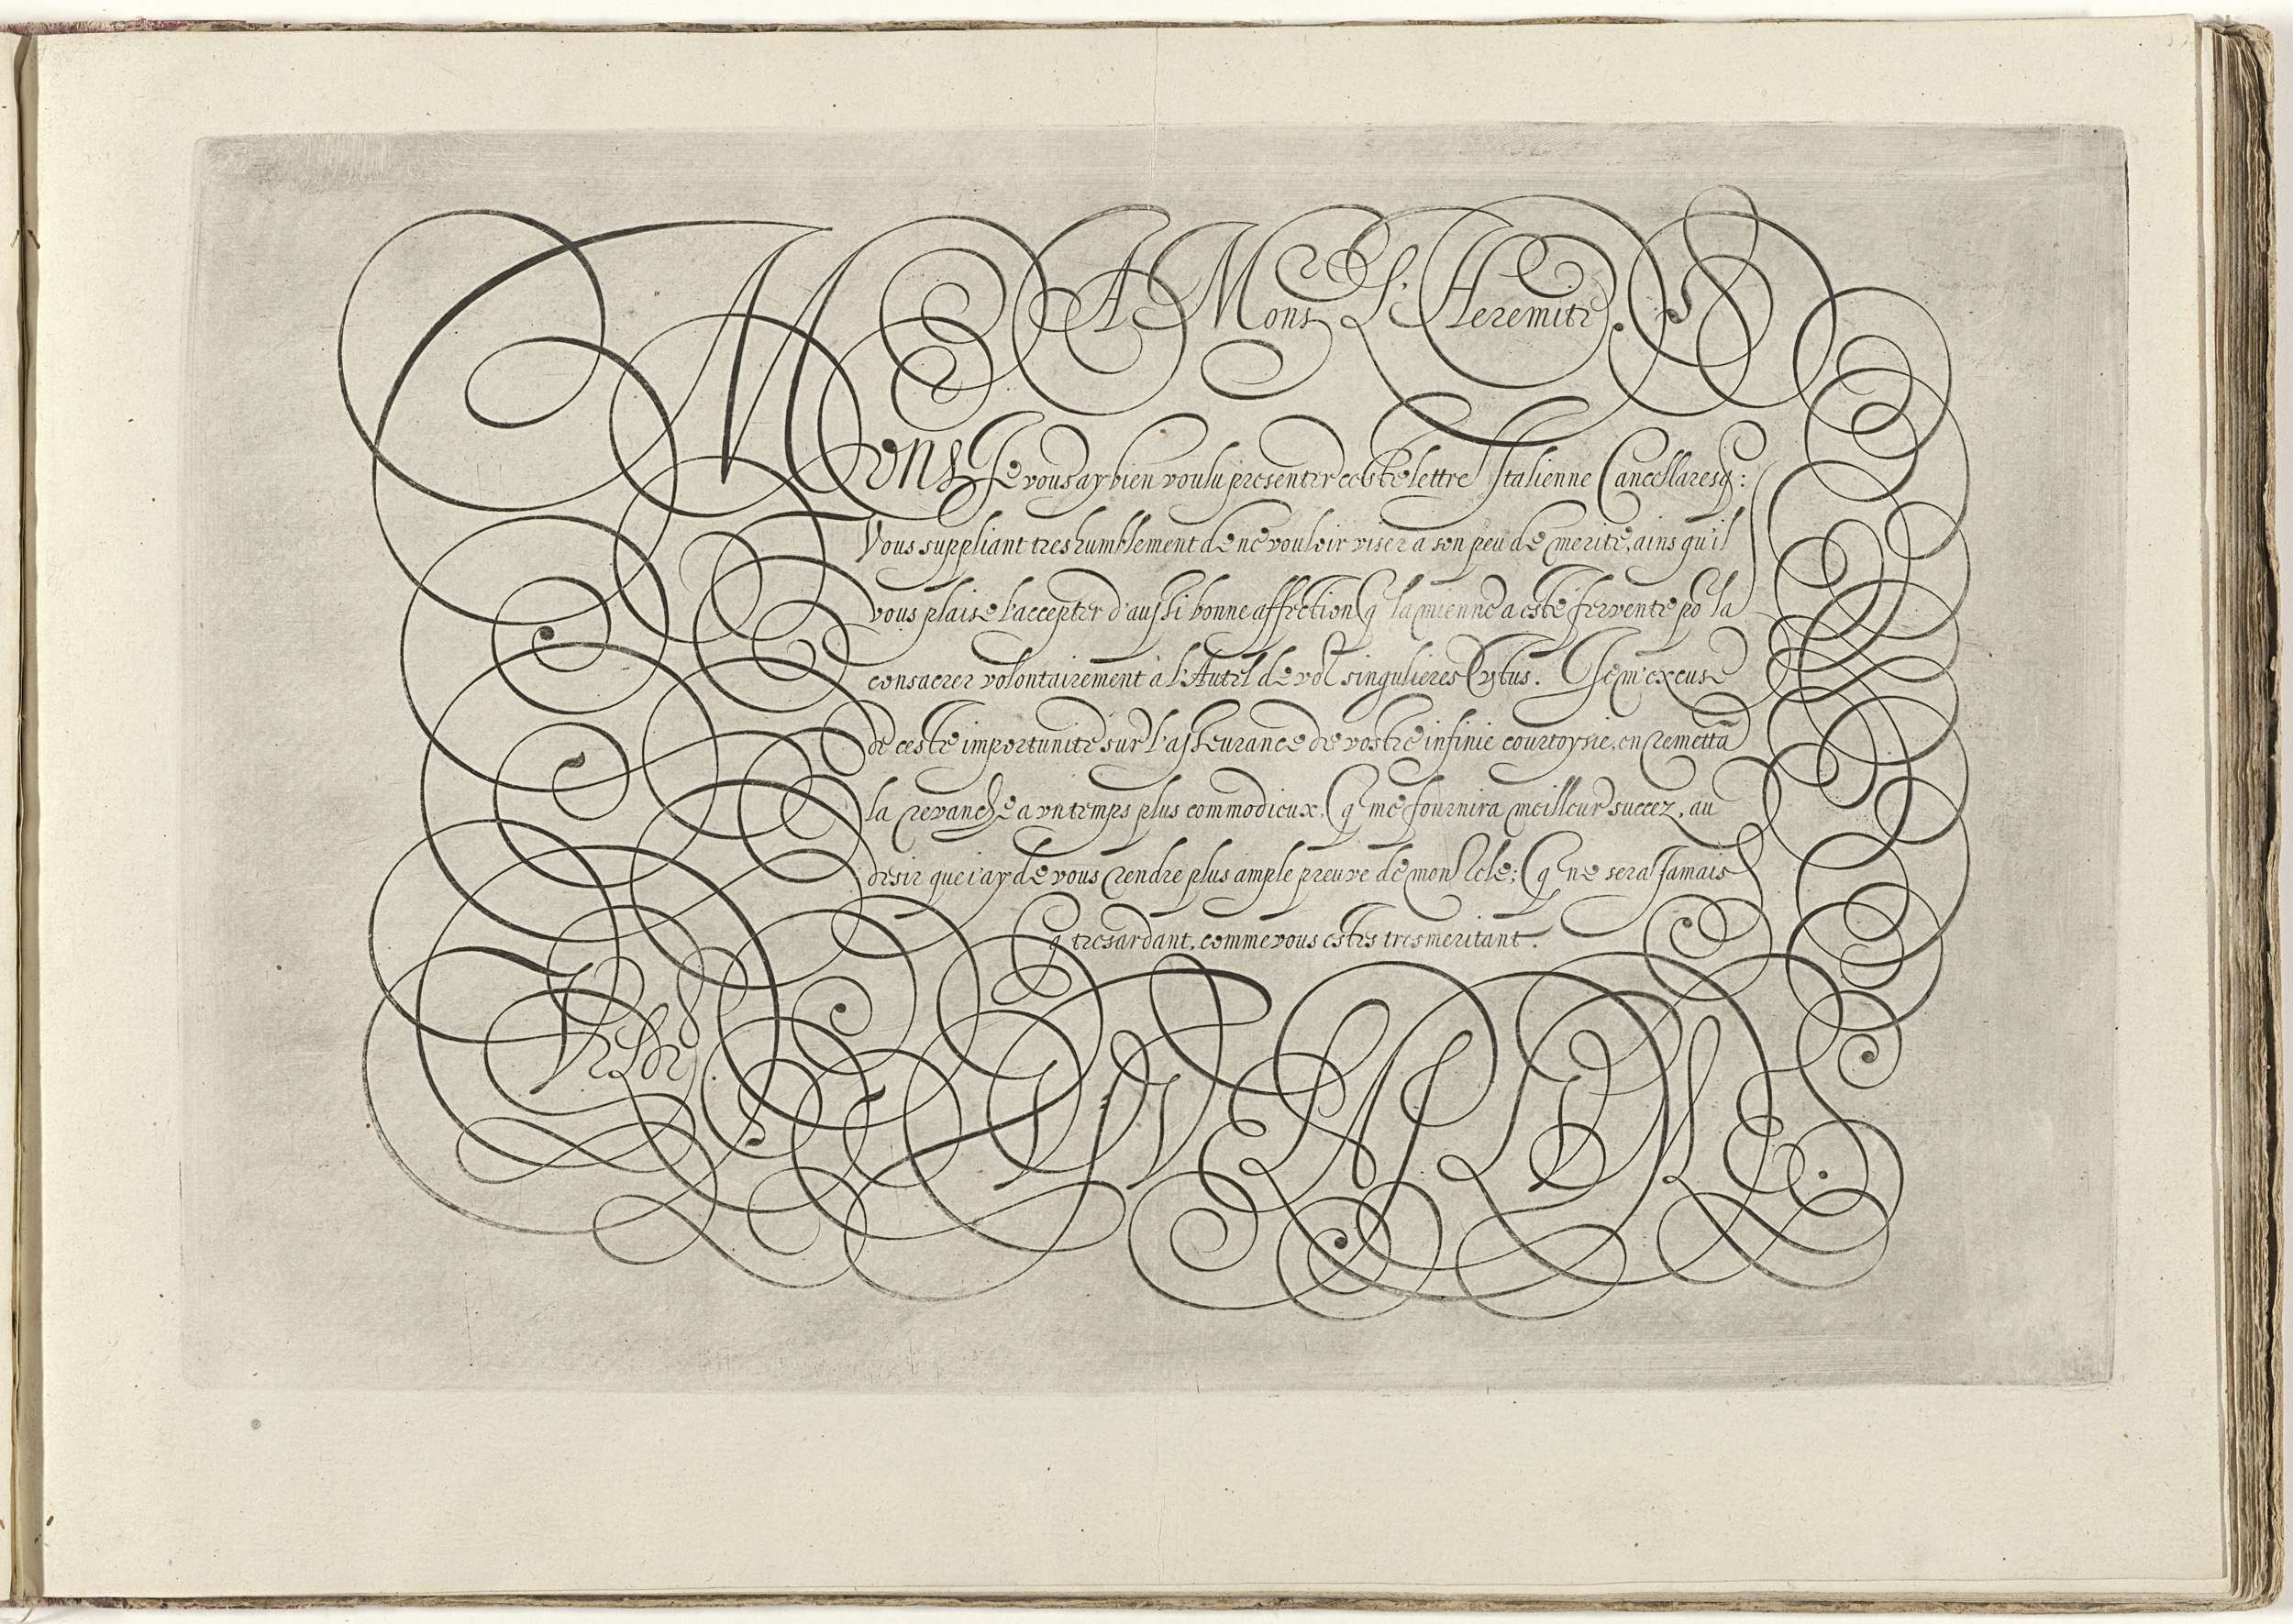 A Mons. L'Heremite.
Mons. Je vous ay bien voulu presenter ceste lettre Italienne Cancellaresq:
Vous suppliant treshumblement de ne vouloir viser a son peu de merite, ains qu'il
vous plaise l'accepter d'aussi bonne affection q la mienne a esté fervente po la
consacrer volontairement à l'Autel de voz singulieres vtus. Je m'excuse
de ceste importunité sur l'asseurance de vostre infinie courtoysie, en remettã
la revanche a vn temps plus commodieux, q me fournira meilleur succez, au
desir que i'ay de vous rendre plus ample preuve de mon zele; q ne sera jamais
q tresardant, comme vous estes tresmeritant.